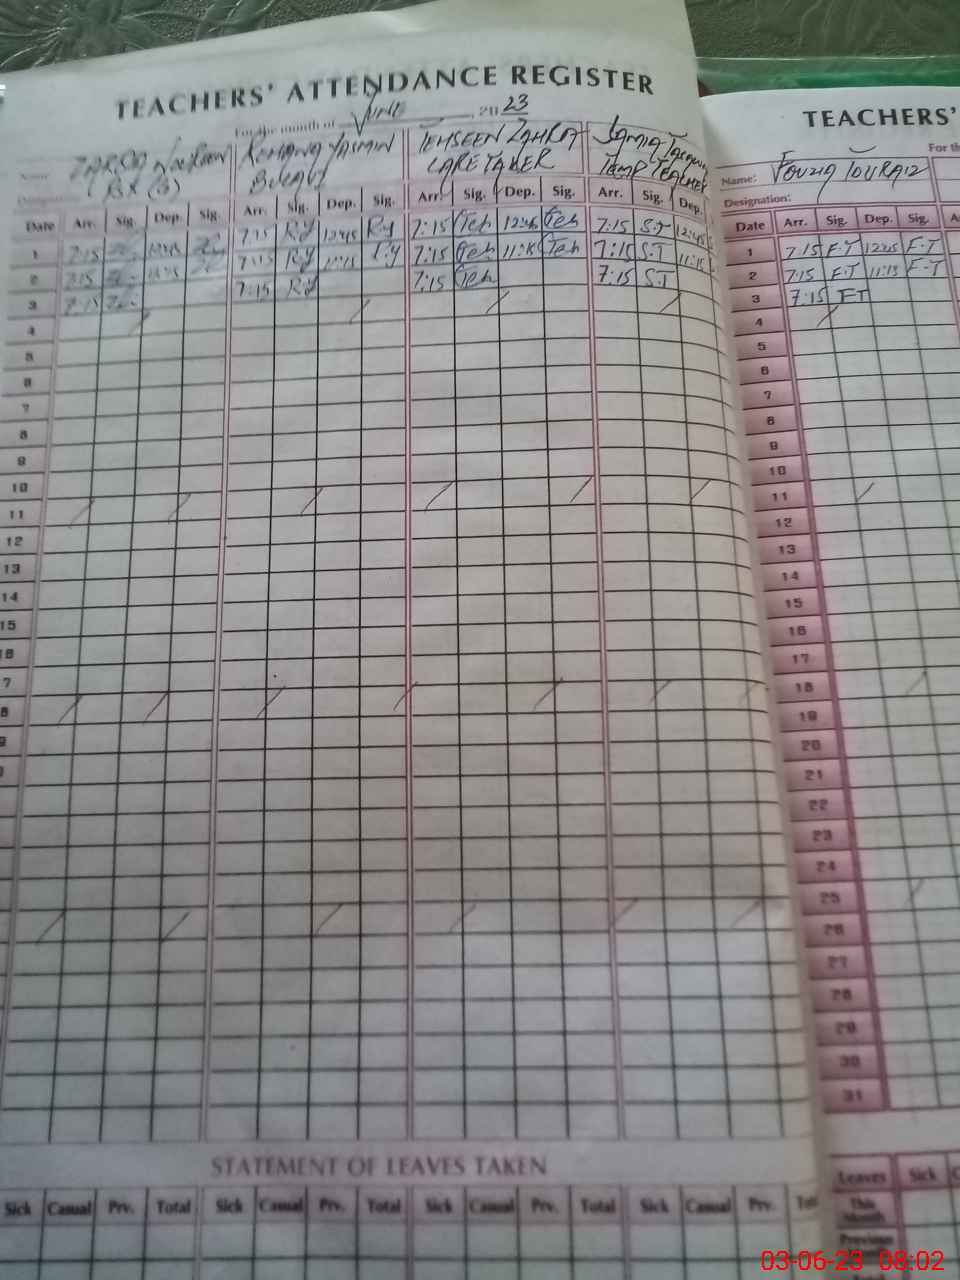 TEACHERS' ATTENDANCE REGISTER
For the month of June, 2023
Name: ZARQA NOUREEN REHANA YASMIN TEHSEEN ZAHRA SAMIA
CARE TAKER TEMP TEACHER
Date Arr. Sig. Dep. Sig. Arr. Sig. Dep. Sig. Arr. Sig. Dep. Sig. Arr. Sig. Dep.
1 7:15 12:45 7:15 R.Y 12:45 R.Y 7:15 Teh 12:45 Teh 7:15 S.T 12:45
2 7:15 11:15 7:15 R.Y 11:15 R.Y 7:15 Teh 11:15 Teh 7:15 S.T 11:15
3 7:15 7:15 R.Y 7:15 Teh 7:15 S.T
4
5
6
7
8
9
10
11
12
13
14
15
16
7
8
9
STATEMENT OF LEAVES TAKEN
Sick Casual Prv. Total Sick Casual Prv. Total Sick Casual Prv. Total Sick Casual Prv. Tot
TEACHERS'
For th
Name: FOUZIA
Designation:
Date Arr. Sig. Dep. Sig. A
1 7:15 F.T 12:25 F.T
2 7:15 F.T 11:15 F.T
3 7:15 F.T
4
5
6
7
8
9
10
11
12
13
14
15
16
17
18
19
20
21
22
23
24
25
26
27
28
29
30
31
Leaves Sick C
This Month
Previous
03-06-23 08:02